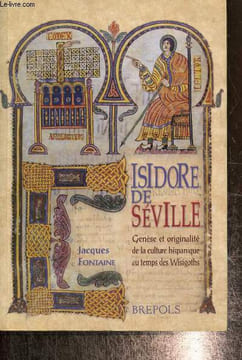 Le-livre.com
CODEX
ISIDORE
DE
SÉVILLE
Genèse et originalité
de la culture hispanique
au temps des Wisigoths
Jacques
FONTAINE
BREPOLS